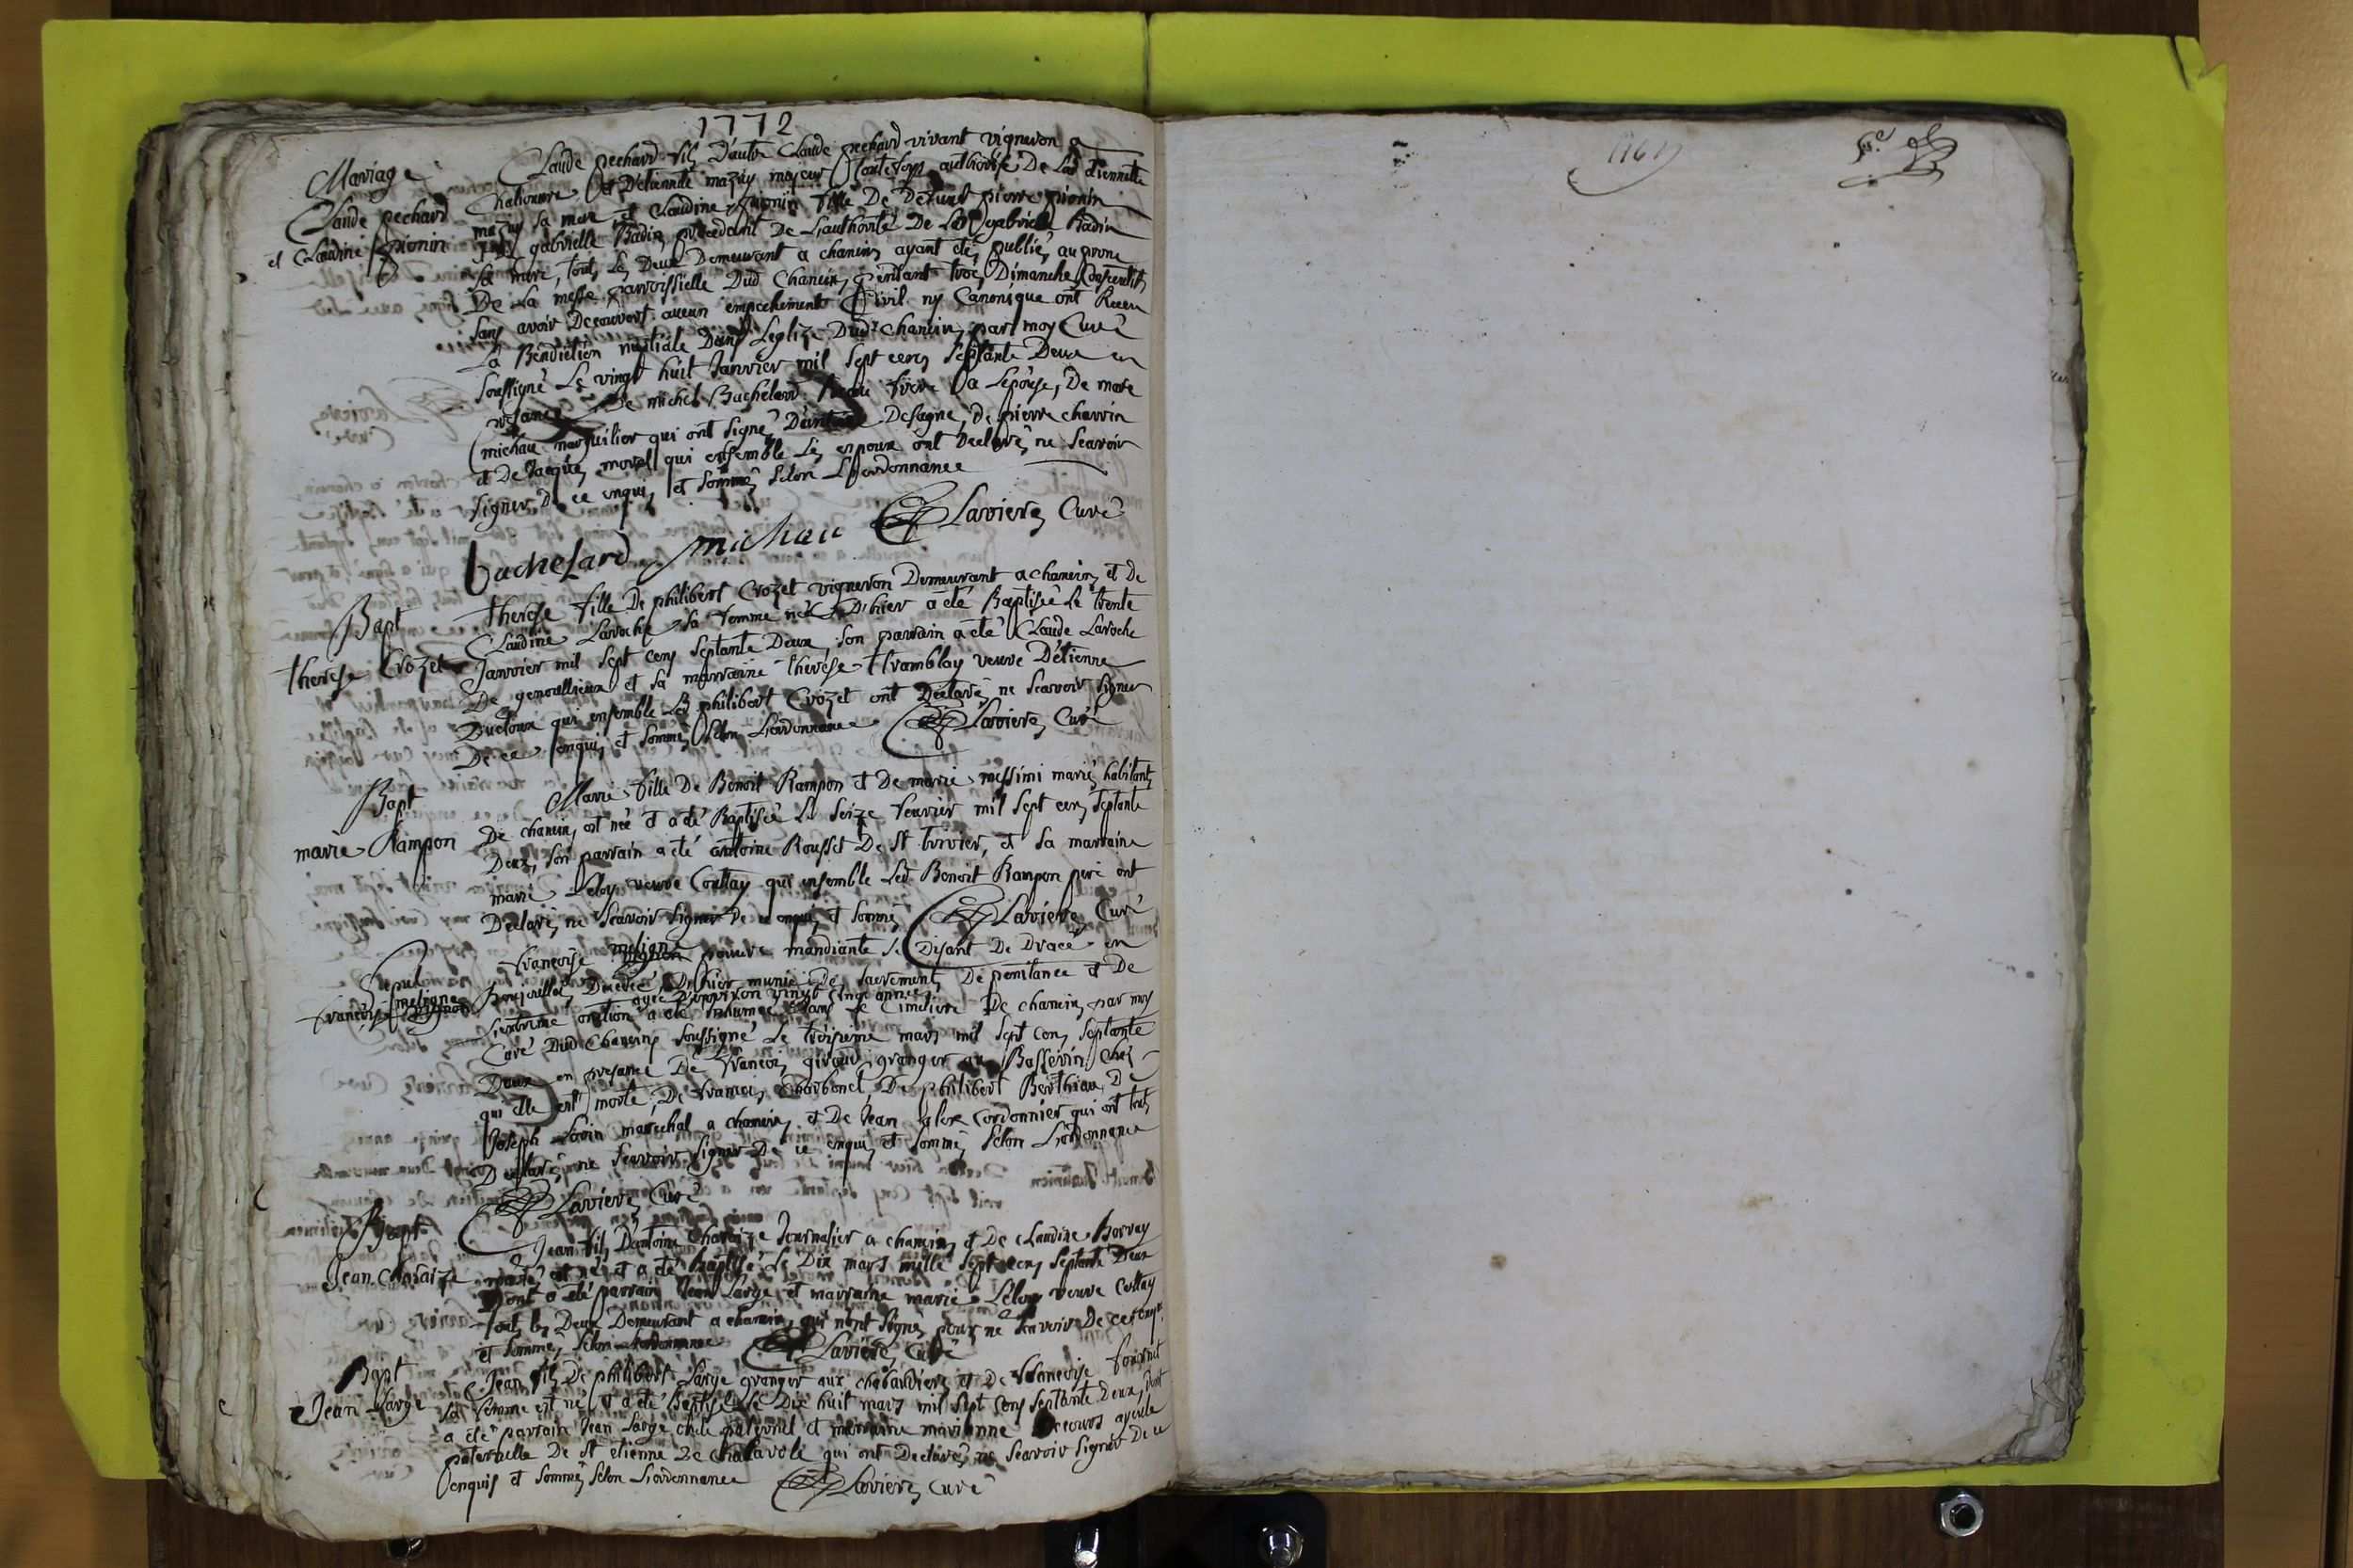 1772
Mariage
Claude pechard
et Claudine pionin
Claude pechard fils D'autre Claude pechard vivant vigneron a
et D'etiennette mazuy majeur toutefois authorisé De Lad etiennette
mazuy sa mere et Claudine pionin fille De Defunt pierre pionin
gabrielle Badin procedant De L'authorité De Lad gabrielle Badin
sa mere, touts Les Deux Demeurant a chanein, ayant eté publiés au prone
De La messe parroissielle Dud Chanein, pendant trois Dimanches consecutifs
sans avoir Decouvert aucun empechement Civil ny Canonique ont Receu
La Benediction nuptiale Dans L'eglize Dudt chanein, par moy Curé
soussigné Le vingt huit Janvier mil sept cens septante Deux en
presance De michel Buchelard frere a L'epouse, De
michau marguilier qui ont signé, Desagne, De pierre charvin
et De Jacques morel qui ensemble Les epoux ont Declaré ne scavoir
signer De ce enquis et sommés selon L'ordonnance
buchelard michau Laviere Curé
Bapt
therese Crozet
therese fille De philibert Crozet vigneron Demeurant a chanein, et De
Claudine Laroche sa femme née D'hier a eté Baptisée Le trente
Janvier mil sept cens septante Deux, son parrain a eté Claude Laroche
De genouillieux et sa marraine therese tramblay veuve D'etienne
Ducloux qui ensemble Led philibert Crozet ont Declaré ne scavoir signer
De ce enquis et sommés selon L'ordonnance Laviere Curé
Bapt
marie Rampon
Marie fille De Benoit Rampon et De marie messimi mariés habitants
De chanein, est née et a eté Baptisée Le seize fevrier mil sept cens septante
Deux, son parrain a eté antoine Rousset De St trivier, et sa marraine
marie Leloup veuve Coultay qui ensemble Led Benoit Rampon pere ont
Declaré ne scavoir signer De ce enquis et sommés Laviere Curé
Sepul
francoise meligne
francoise meligne pauvre mandiante se Disant De Dracé en
Beaujollois, Decedée D'hier munie Des sacrements De penitance et De
agée D'environ vingt cinq années
L'extreme onction a eté inhumée Dans le Cimetiere De chanein, par moy
Curé Dud Chanein, soussigné Le troisieme mars mil sept cens septante
Deux en presance De francois giraud, granger au Basserin, chez
qui elle est morte, De francois charbonet, De philibert Berthiau, De
Joseph Lorin marechal a chanein, et De Jean cordonnier qui ont touts
Declaré ne scavoir signer De ce enquis et sommés selon L'ordonnance
Laviere Curé
Bapt
Jean Charaize
Jean fils D'antoine Charaize Journalier a chanein, et De Claudine Borvay
mariés est né et a eté Baptisé Le Dix mars mille sept cens septante Deux
Dont a eté parrain Jean Large et marraine marie Leloup veuve Coultay
touts les Deux Demeurant a chanein, qui n'ont signé pour ne scavoir De ce enquis
et sommés selon L'ordonnance Laviere Curé
Bapt
Jean Large
Jean fils De philibert Large granger aux chabaudieres, et De francoise fournet
sa femme est né et a eté Baptisé Le Dix huit mars mil sept cens septante Deux, Dont
a eté parrain Jean Large oncle paternel et marraine marianne ayeule
paternelle De St etienne De chalarole qui ont Declaré ne scavoir signer De ce
enquis et sommés selon L'ordonnance Laviere Curé